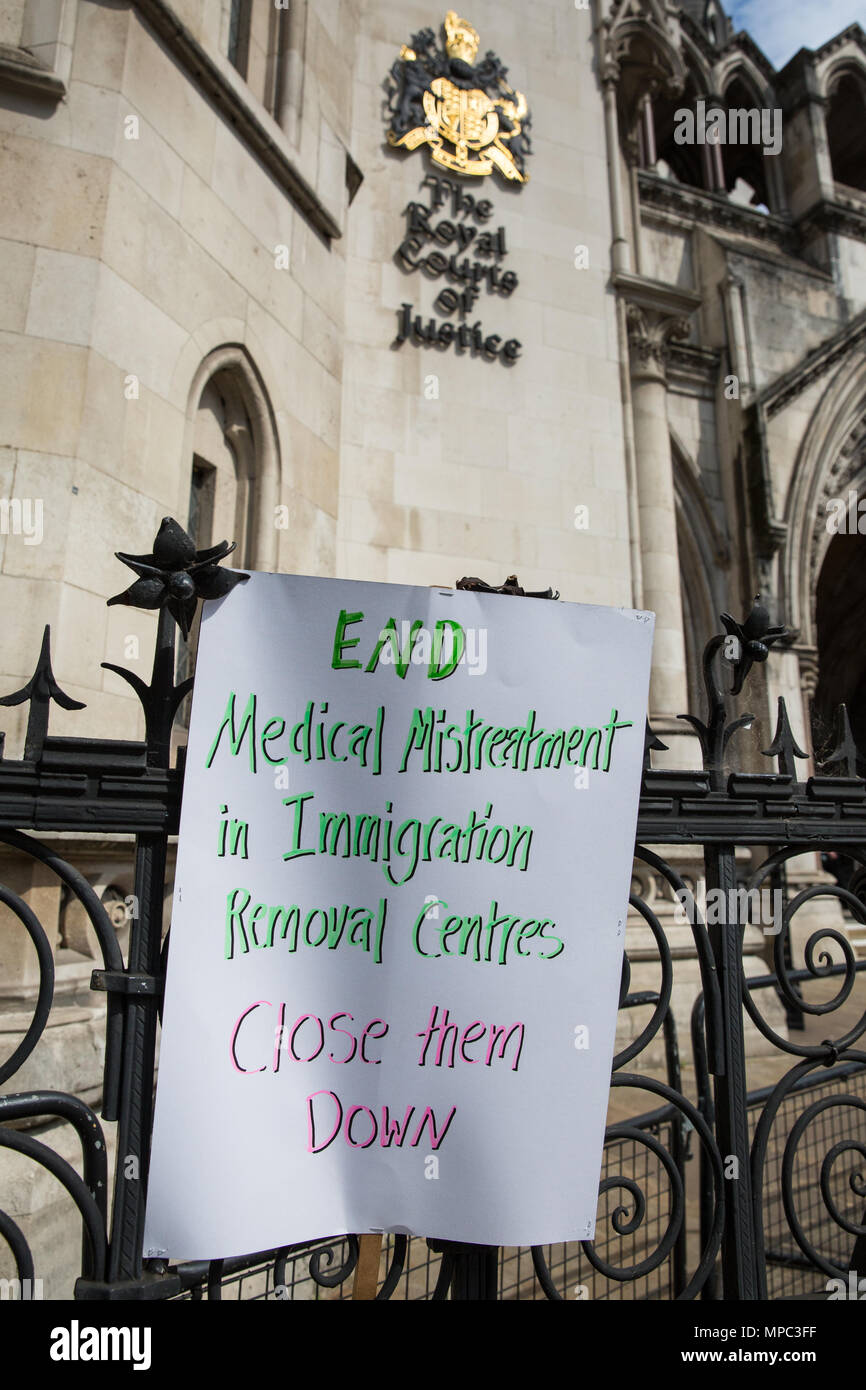 The
Royal
Courts
of
Justice
END
Medical Mistreatment
in Immigration
Removal Centres
Close them
DOWN
alamy
Image ID: MPC3FF
www.alamy.com